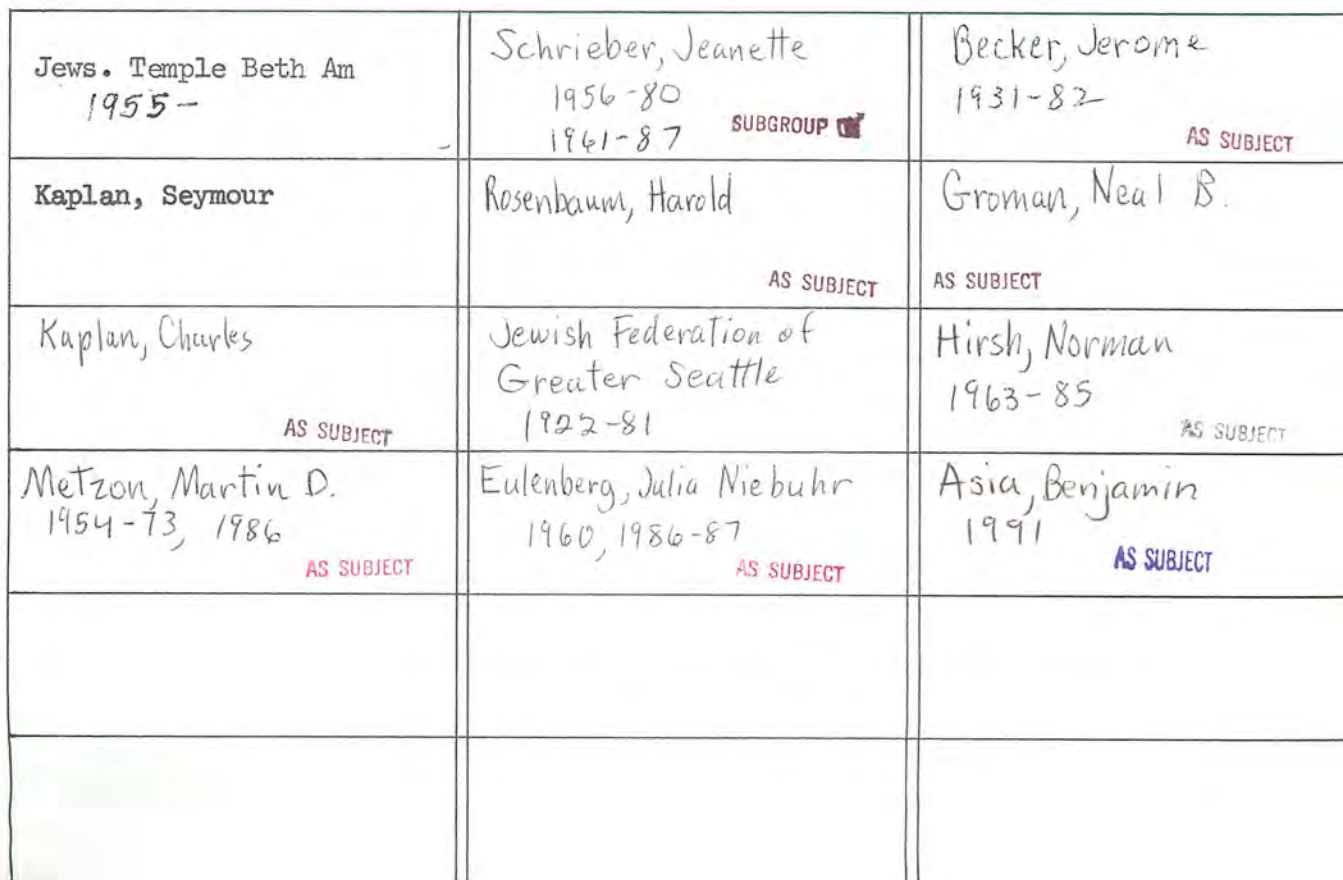 Jews. Temple Beth Am
1955-
Schrieber, Jeanette
1956-80
1961-87
SUBGROUP
Becker, Jerome
1931-82
AS SUBJECT
Kaplan, Seymour
Rosenbaum, Harold
AS SUBJECT
Groman, Neal B.
AS SUBJECT
Kaplan, Charles
AS SUBJECT
Jewish Federation of
Greater Seattle
1922-81
Hirsh, Norman
1963-85
AS SUBJECT
Metzon, Martin D.
1954-73, 1986
AS SUBJECT
Eulenberg, Julia Niebuhr
1960, 1986-87
AS SUBJECT
Asia, Benjamin
1991
AS SUBJECT